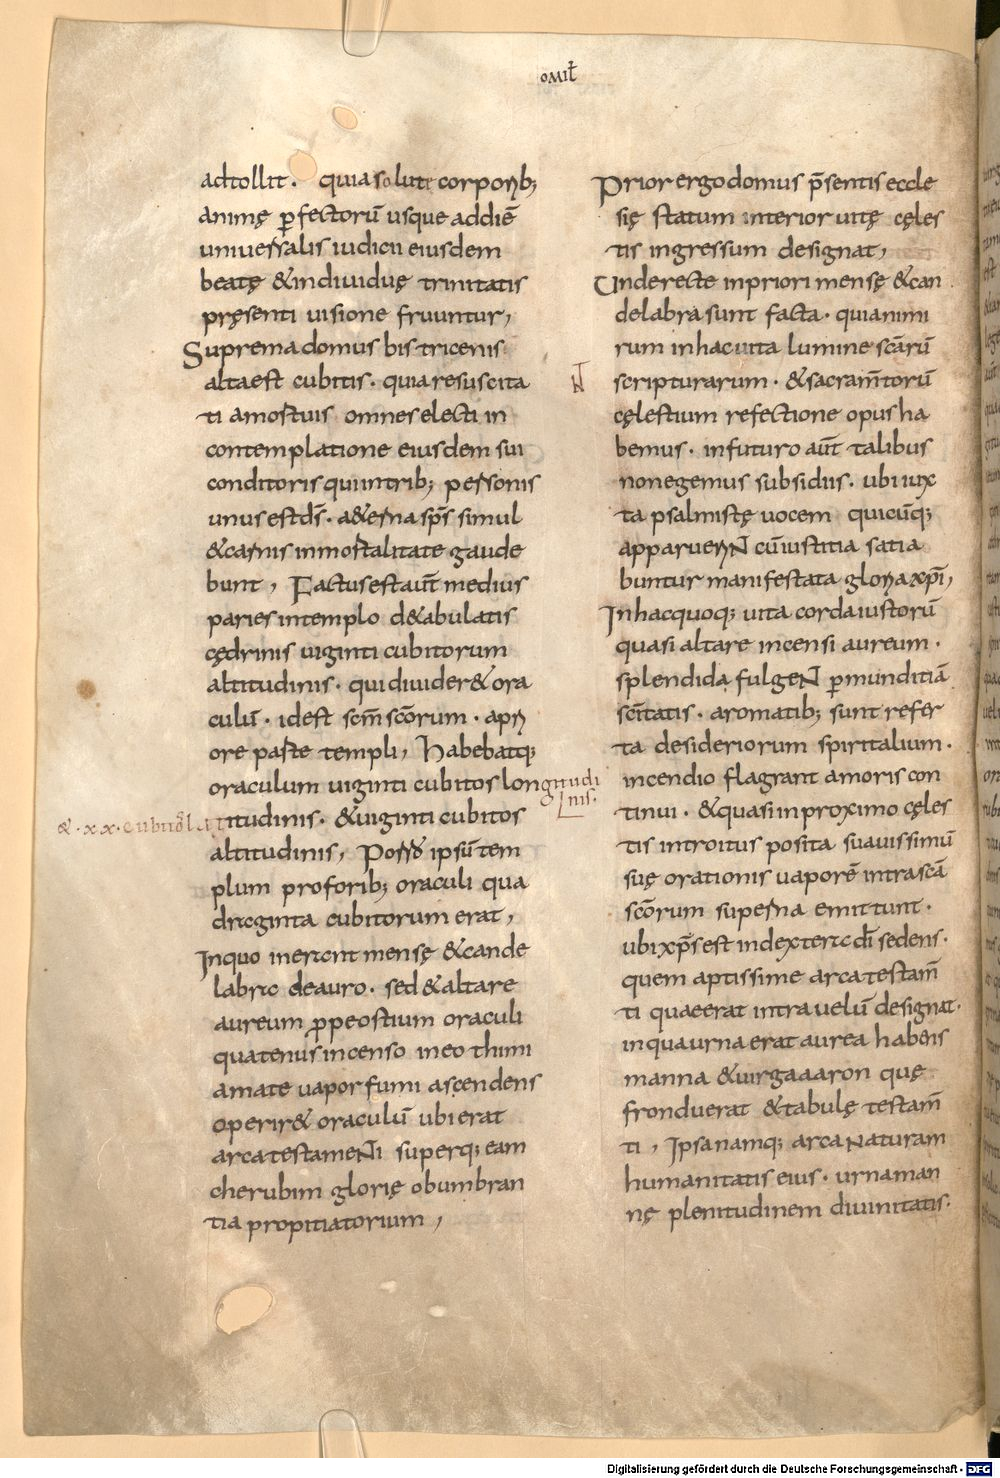 omił
adtollit. quia solute corporib;
animę ꝑfectorū usque addiē
uniuersalis iudicii eiusdem
beatę & indiuiduę trinitatis
pręsenti uisione fruuntur,
Suprema domus bis tricenis
alta est cubitis. quia resuscita
ti a mortuis omnes electi in
contemplatione eiusdem sui
conditoris qui in trib; personis
unus est dš. aeterna sps̄ simul
& carnis inmortalitate gaude
bunt, Factus est aut̄ medius
paries in templo de tabulatis
cędrinis uiginti cubitorum
altitudinis. qui diuideret ora
culū. id est sc̄m sc̄orum. apri
ore parte templi, Habebatq;
oraculum uiginti cubitos longitudi
nis.
& .xx. cubitos lat
titudinis. & uiginti cubitos
altitudinis, Porro ipsū tem
plum pro forib; oraculi qua
draginta cubitorum erat,
In quo inerant mensę & cande
labra de auro. sed & altare
aureum ꝓpe ostium oraculi
quatenus incenso in eo thimi
amate uapor fumi ascendens
operiret oraculū ubi erat
arca testamenti superq; eam
cherubim glorię obumbran
tia propitiatorium,
Prior ergo domus p̄sentis eccle
się statum interior uitę cęles
tis ingressum designat,
Unde recte in priori mensę & can
delabra sunt facta. quia nimi
rum in hac uita lumine sc̄arū
scripturarum. & sacram̄torū
cęlestium refectione opus ha
bemus. in futuro aut̄ talibus
non egemus subsidiis. ubi iux
ta psalmistę uocem quicūq;
apparuerint cū iustitia satia
buntur manifestata gloria xp̄i,
In hac quoq; uita corda iustorū
quasi altare incensi aureum.
splendida fulgent ꝑ munditiā
sc̄itatis. aromatib; sunt refer
ta desideriorum spiritalium.
incendio flagrant amoris con
tinui. & quasi in proximo cęles
tis introitus posita suauissimū
suę orationis uaporē intra sc̄ā
sc̄orum superna emittunt.
ubi xp̄s est in dextera dī sedens.
quem aptissime arca testam̄
ti quae erat intra uelū designat.
in qua urna erat aurea habens
manna & uirga aaron quę
fronduerat & tabulę testam̄
ti, Ipsa namq; arca naturam
humanitatis eius. urna man
nę plenitudinem diuinitatis.
Digitalisierung gefördert durch die Deutsche Forschungsgemeinschaft - DFG